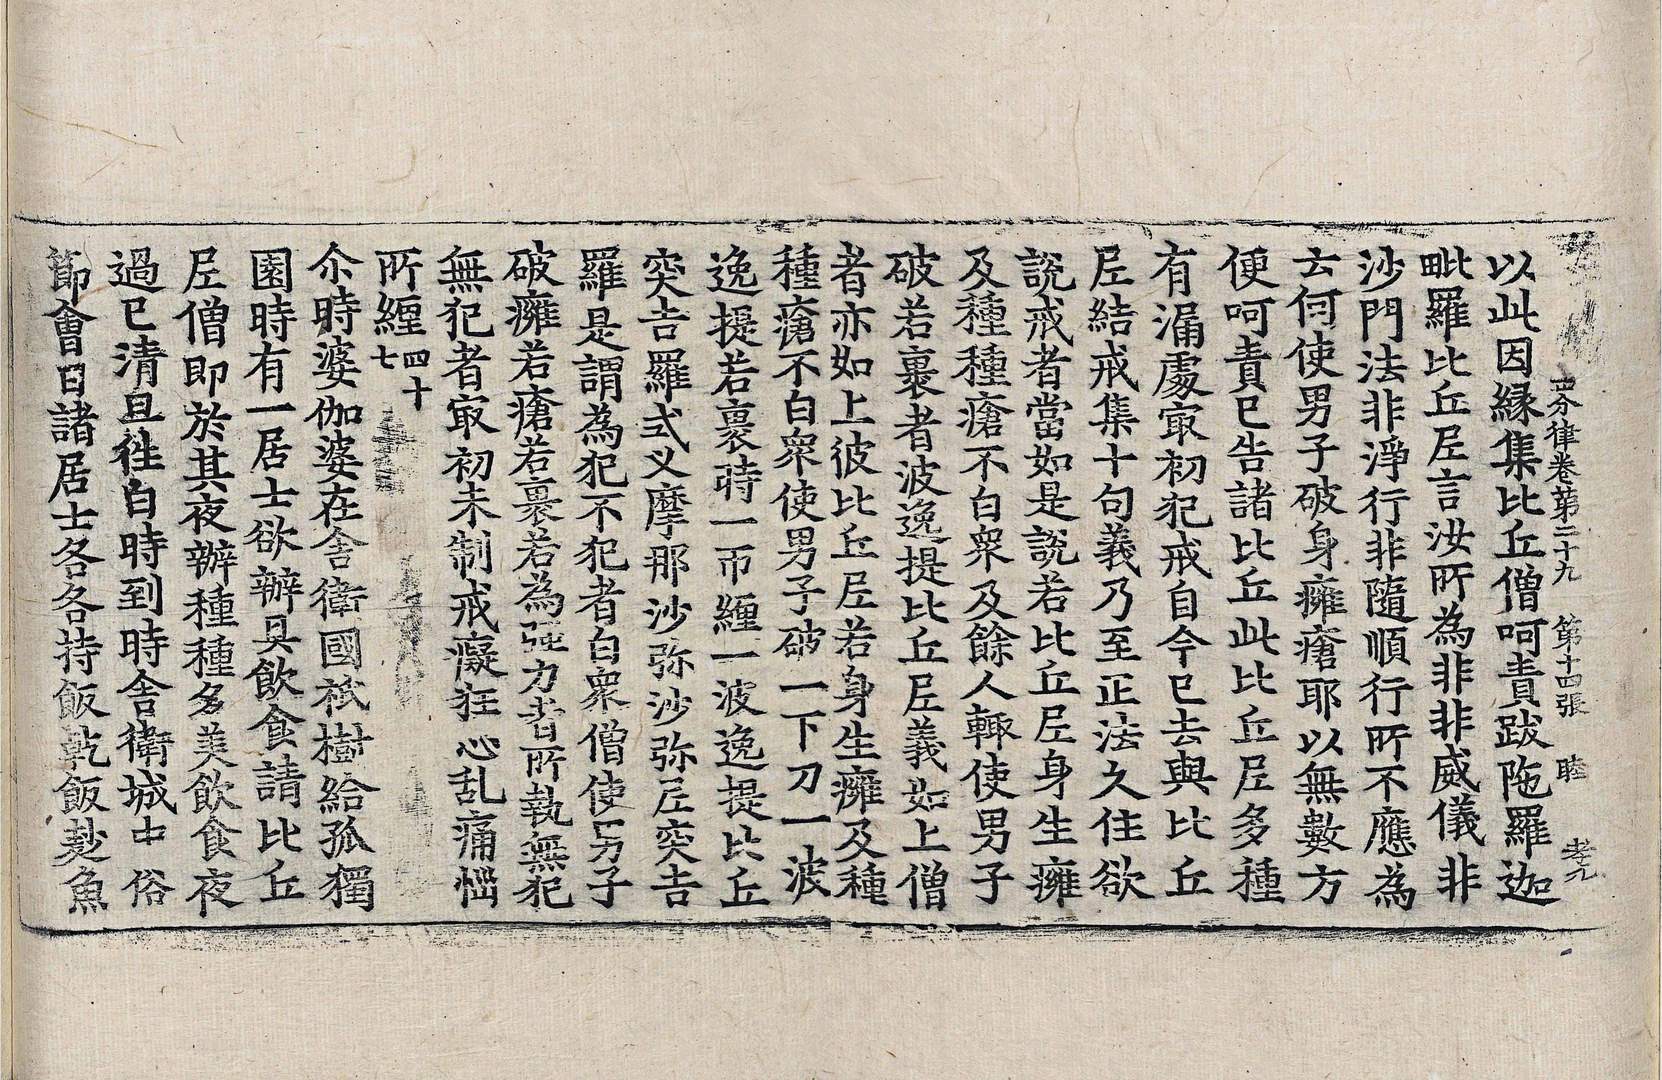 四分律卷第二十九　第十四張　睦
以此因緣集比丘僧呵責跋陁羅迦
毗羅比丘尼言汝所為非非威儀非
沙門法非淨行非隨順行所不應為
云何使男子破身癰瘡耶以無數方
便呵責已告諸比丘此比丘尼多種
有漏處冣初犯戒自今已去與比丘
尼結戒集十句義乃至正法久住欲
說戒者當如是說若比丘尼身生癰
及種種瘡不白眾及餘人輙使男子
破若裹者波逸提比丘尼義如上僧
者亦如上彼比丘尼若身生癰及種
種瘡不白眾使男子破一下刀一波
逸提若裹時一帀纏一波逸提比丘
突吉羅式叉摩那沙弥沙弥尼突吉
羅是謂為犯不犯者白眾僧使男子
破癰若瘡若裹若為强力者所執無犯
無犯者冣初未制戒癡狂心乱痛惱
所纏四十七
尒時婆伽婆在舍衛國祇樹給孤獨
園時有一居士欲辦具飲食請比丘
尼僧即於其夜辦種種多美飲食夜
過已清旦往白時到時舍衛城中俗
節會日諸居士各各持飯乾飯麨魚